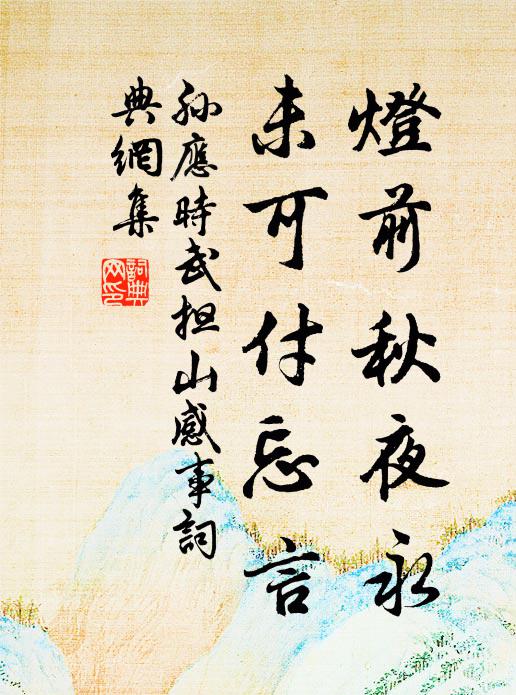 燈前秋夜永
未可付忘言
孙應時武担山感事詞
典網集
詞典
网印